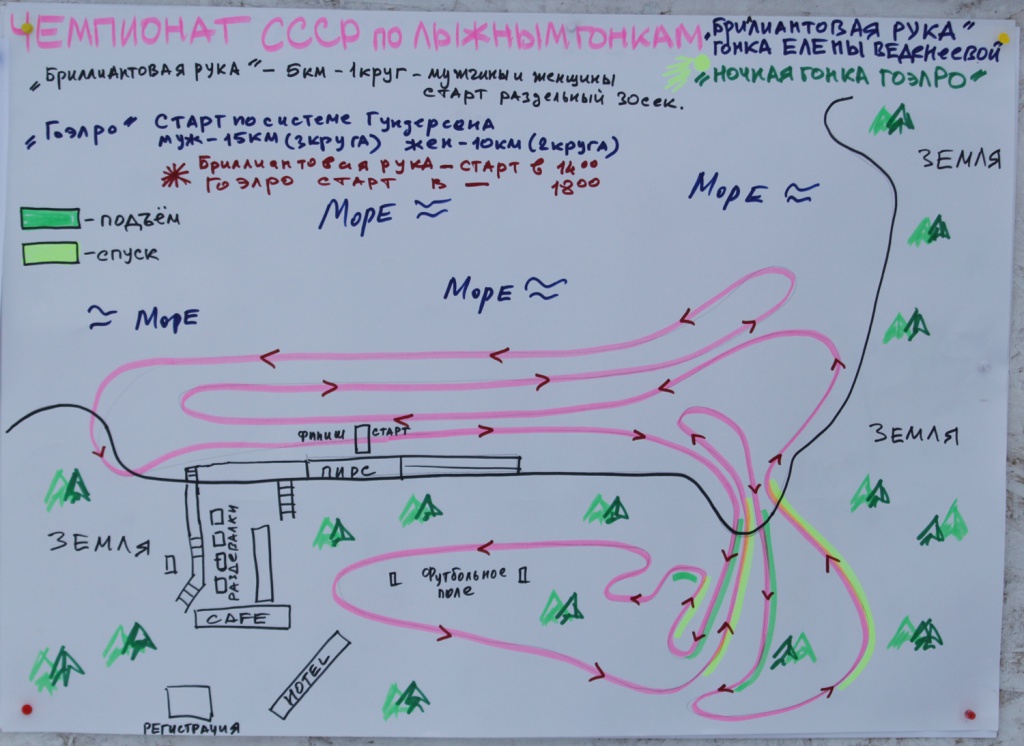 ЧЕМПИОНАТ СССР ПО ЛЫЖНЫМ ГОНКАМ
„БРИЛИАНТОВАЯ РУКА"
ГОНКА ЕЛЕНЫ ВЕДЕНЕЕВОЙ
„НОЧНАЯ ГОНКА ГОЭЛРО"
„БРИЛЛИАНТОВАЯ РУКА" – 5КМ – 1КРУГ – МУЖЧИНЫ И ЖЕНЩИНЫ
СТАРТ РАЗДЕЛЬНЫЙ 30СЕК.
„ГОЭЛРО" СТАРТ ПО СИСТЕМЕ ГУНДЕРСЕНА
МУЖ – 15КМ (3КРУГА) ЖЕН – 10КМ (2КРУГА)
БРИЛЛИАНТОВАЯ РУКА – СТАРТ В 14⁰⁰
ГОЭЛРО СТАРТ В — 18⁰⁰
– ПОДЪЁМ
– СПУСК
ЗЕМЛЯ
МОРЕ
МОРЕ
МОРЕ
МОРЕ
ФИНИШ СТАРТ
ЗЕМЛЯ
ПИРС
ЗЕМЛЯ
РАЗДЕВАЛКИ
ФУТБОЛЬНОЕ
ПОЛЕ
CAFE
HOTEL
РЕГИСТРАЦИЯ